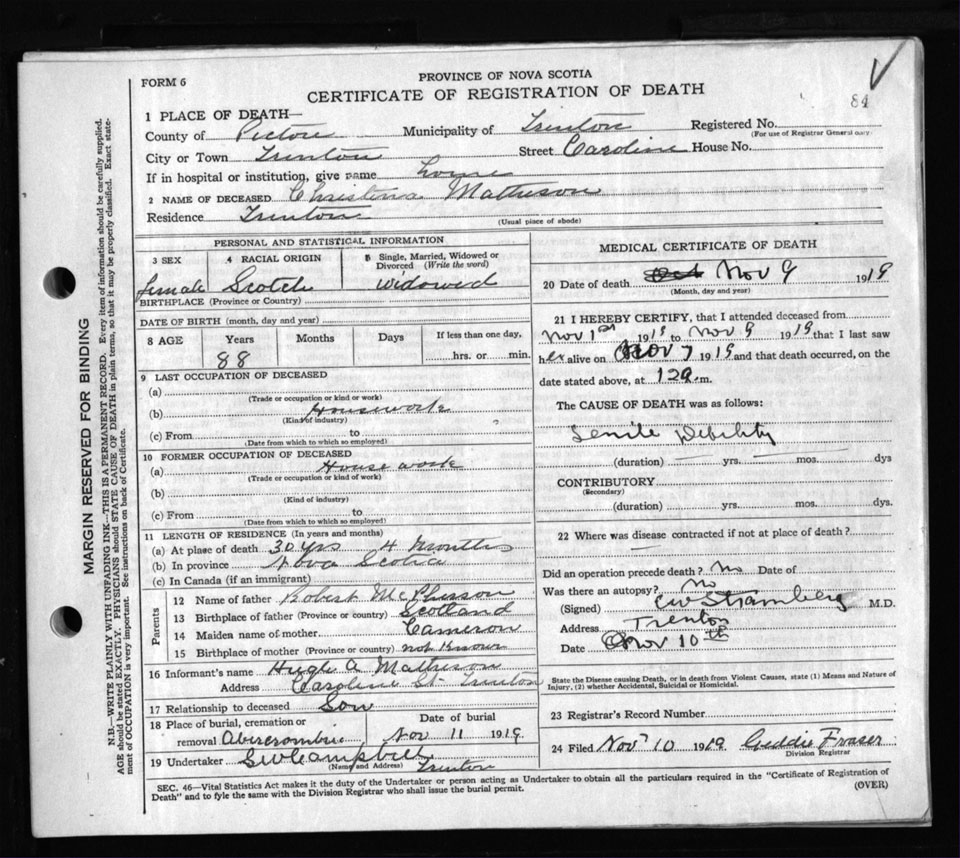 FORM 6
PROVINCE OF NOVA SCOTIA
CERTIFICATE OF REGISTRATION OF DEATH
84
1 PLACE OF DEATH—
County of Pictou Municipality of Trenton Registered No.
(For use of Registrar General only)
City or Town Trenton Street Caroline House No.
If in hospital or institution, give name home
2 NAME OF DECEASED Christena Matheson
Residence Trenton
(Usual place of abode)
PERSONAL AND STATISTICAL INFORMATION
3 SEX 4 RACIAL ORIGIN 5 Single, Married, Widowed or Divorced (Write the word)
female Scotch widowed
BIRTHPLACE (Province or Country)
DATE OF BIRTH (month, day and year)
8 AGE Years Months Days If less than one day,
88 hrs. or min.
9 LAST OCCUPATION OF DECEASED
(a)
(Trade or occupation or kind of work)
(b) Housework
(Kind of industry)
(c) From to
(Date from which to which so employed)
10 FORMER OCCUPATION OF DECEASED
(a) House work
(Trade or occupation or kind of work)
(b)
(Kind of industry)
(c) From to
(Date from which to which so employed)
11 LENGTH OF RESIDENCE (In years and months)
(a) At place of death 30 yrs 4 months
(b) In province Nova Scotia
(c) In Canada (if an immigrant)
Parents
12 Name of father Robert McPherson
13 Birthplace of father Scotland
14 Maiden name of mother Cameron
15 Birthplace of mother (Province or country) not Known
16 Informant's name Hugh A Matheson
Address Caroline St Trenton
17 Relationship to deceased Son
18 Place of burial, cremation or Date of burial
removal Abercrombie Nov 11 1919
19 Undertaker S W Campbell
(Name and Address) Trenton
MEDICAL CERTIFICATE OF DEATH
20 Date of death Oct Nov 9 1919
(Month, day and year)
21 I HEREBY CERTIFY, that I attended deceased from
Nov 1st 1919 to Nov 9 1919 that I last saw
her alive on Nov 7 1919 and that death occurred, on the
date stated above, at 12 a.m.
The CAUSE OF DEATH was as follows:
Senile Debility
(duration) yrs. mos. dys
CONTRIBUTORY
(Secondary)
(duration) yrs. mos. dys.
22 Where was disease contracted if not at place of death?
Did an operation precede death? No Date of
Was there an autopsy? No
(Signed) M.D.
Address Trenton
Date Nov 10th
State the Disease causing Death, or in death from Violent Causes, state (1) Means and Nature of
Injury, (2) whether Accidental, Suicidal or Homicidal.
23 Registrar's Record Number
24 Filed Nov 10 1919 Geddie Fraser
Division Registrar
SEC. 46—Vital Statistics Act makes it the duty of the Undertaker or person acting as Undertaker to obtain all the particulars required in the "Certificate of Registration of
Death" and to fyle the same with the Division Registrar who shall issue the burial permit. (OVER)
MARGIN RESERVED FOR BINDING
N.B.—WRITE PLAINLY WITH UNFADING INK—THIS IS A PERMANENT RECORD. Every item of information should be carefully supplied.
AGE should be stated EXACTLY. PHYSICIANS should STATE CAUSE OF DEATH in plain terms, so that it may be properly classified. Exact state-
ment of OCCUPATION is very important. See instructions on back of Certificate.